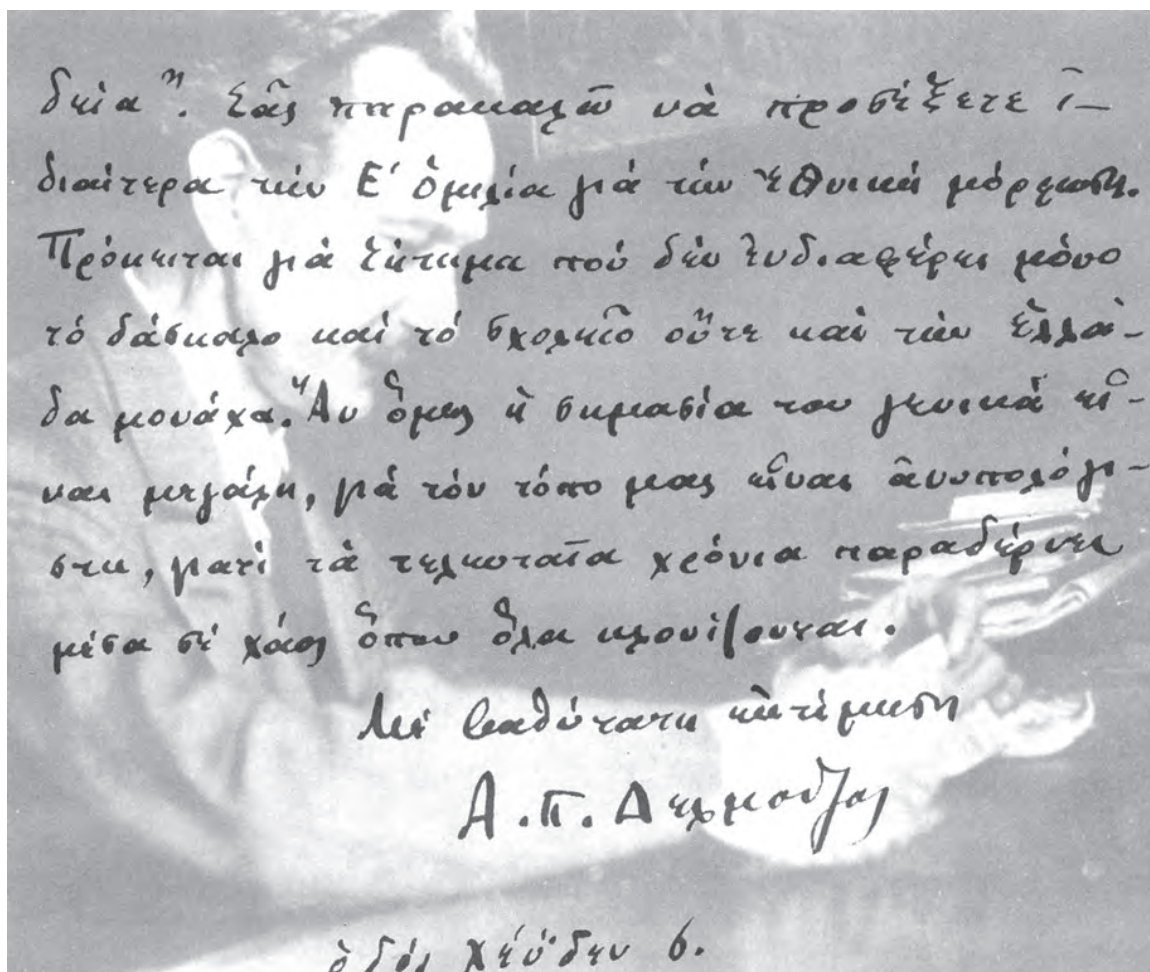 δεία". Σᾶς παρακαλῶ νὰ προσέξετε ἰ-
διαίτερα τὴν Ε' ὁμιλία γιὰ τὴν ἐθνικὴ μόρφωση.
Πρόκειται γιὰ ζήτημα ποὺ δὲν ἐνδιαφέρει μόνο
τὸ δάσκαλο καὶ τὸ σχολεῖο οὔτε καὶ τὴν Ἑλλά-
δα μονάχα. Ἂν ὅμως ἡ σημασία του γενικὰ εἶ-
ναι μεγάλη, γιὰ τὸν τόπο μας εἶναι ἀνυπολόγι-
στη, γιατὶ τὰ τελευταῖα χρόνια παραδέρνει
μέσα σὲ χάος ὅπου ὅλα κλονίζουνται.
Μὲ βαθύτατη ἐκτίμηση
Α. Π. Δελμούζος
ὁδὸς Χέϋδεν 6.